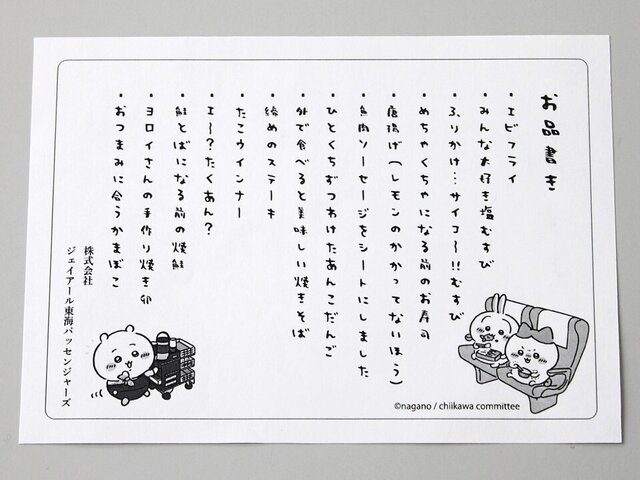 お品書き
・エビフライ
・みんな大好き塩むすび
・ふりかけ・・サイコ〜!!むすび
・めちゃくちゃになる前のお寿司
・唐揚げ(レモンのかかってないほう)
・魚肉ソーセージをシートにしました
・ひとくちずつわけたあんこだんご
・外で食べると美味しい焼きそば
・締めのステーキ
・たこウインナー
・エ〜?たくあん?
・鮭とばになる前の焼鮭
・ヨロイさんの手作り焼き卵
・おつまみに合うかまぼこ
株式会社
ジェイアール東海パッセンジャーズ
©nagano / chiikawa committee